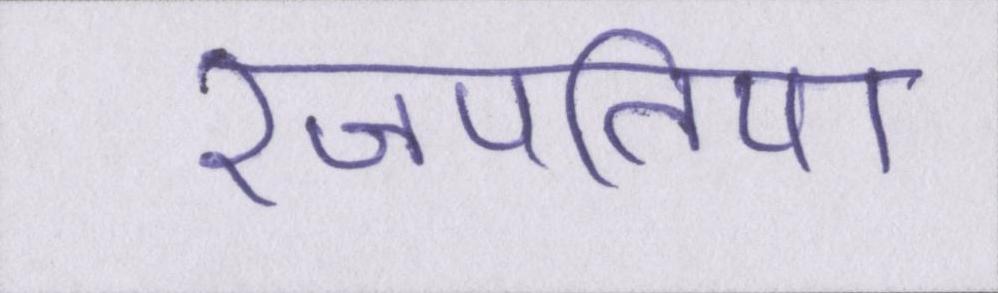 रजपतिया